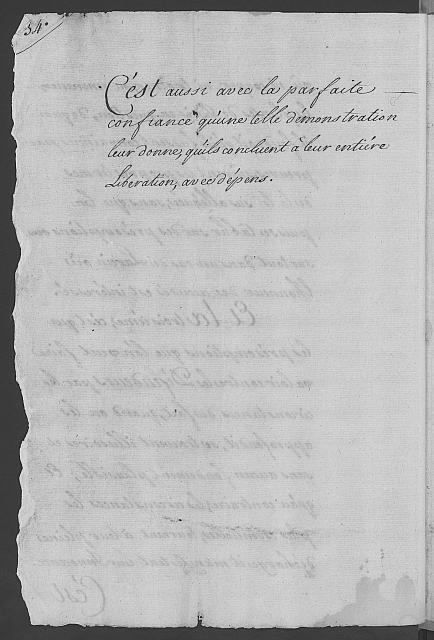 34.
C'est aussi avec la parfaite
confiance qu'une telle démonstration
leur donne, qu'ils concluent à leur entiére
Libération, avec dépens.